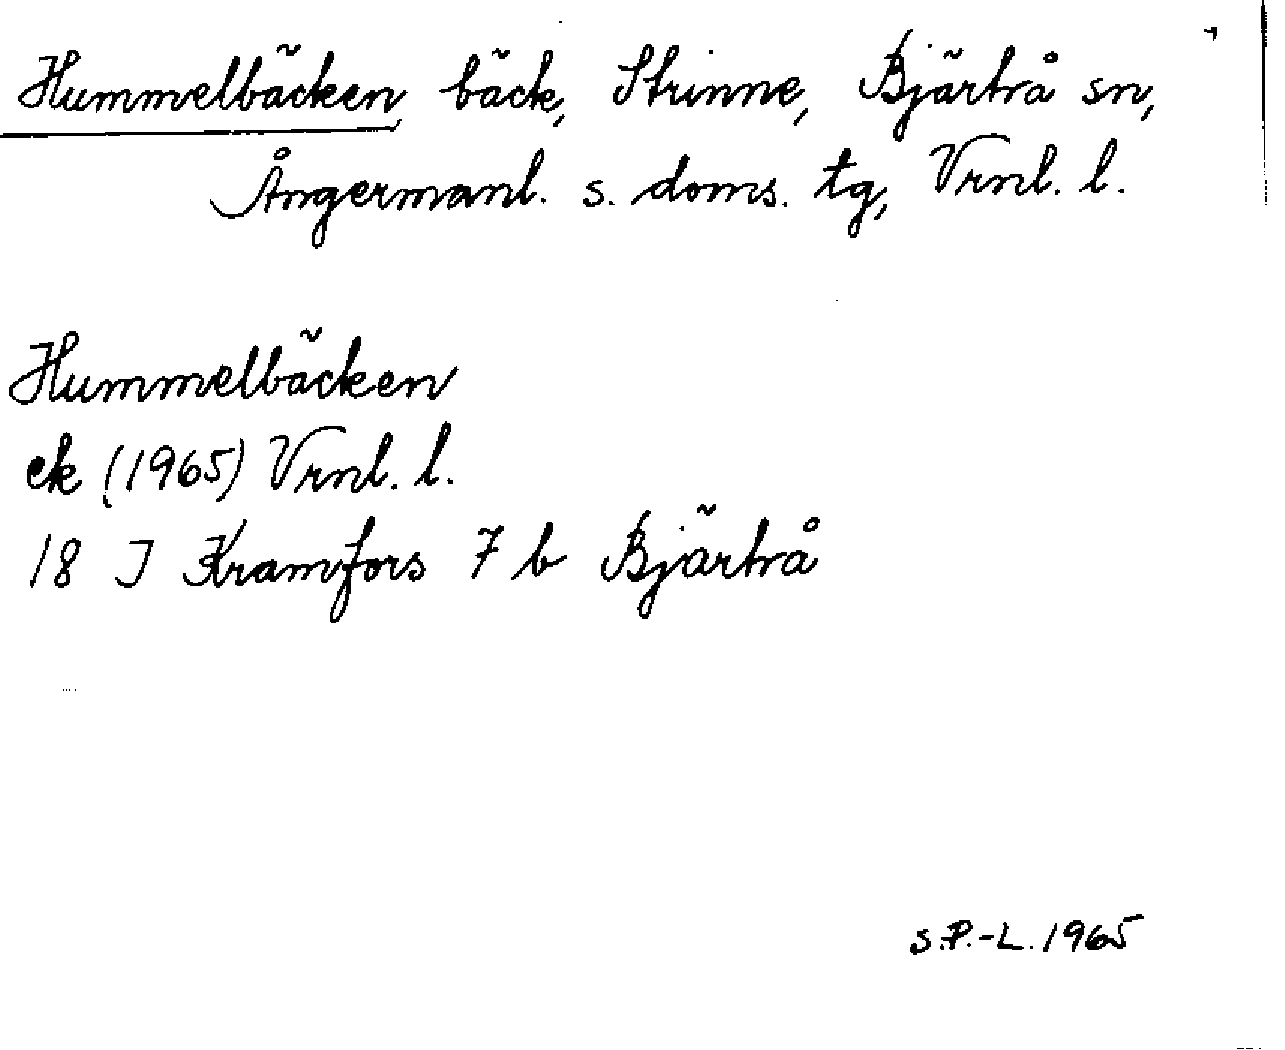 Hummelbäcken, bäck, Strinne, Bjärtrå sn,
Ångermanl. s. doms. tg, Vrnl. l.
Hummelbäcken
ek (1965) Vrnl. l.
18 J Kramfors 7 b Bjärtrå
S.P.-L. 1965